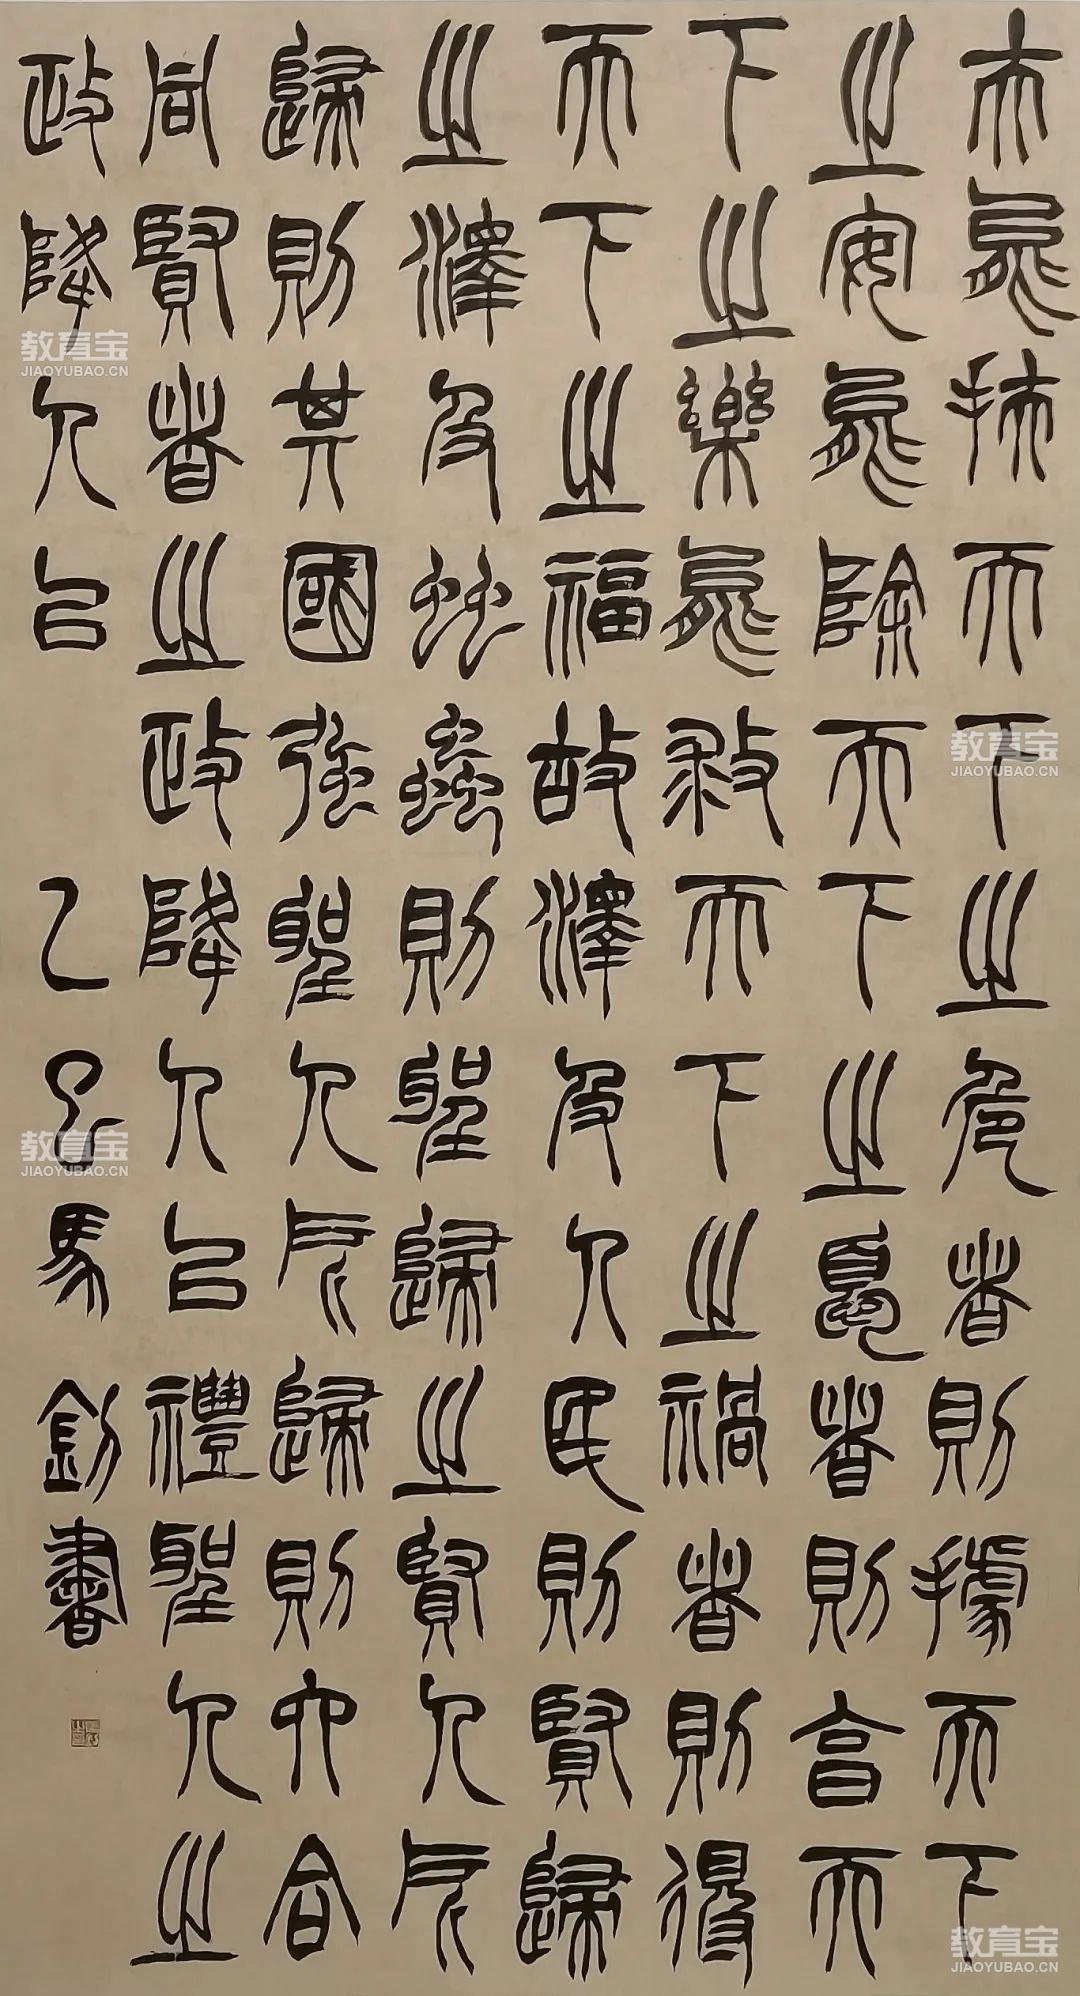 夫能扶天下之危者則據天下
之安能除天下之憂者則享天
下之樂能救天下之禍者則得
天下之福故澤及人民則賢歸
之澤及䖵蟲則聖歸之賢人所
歸則其國強聖人所歸則六合
同賢者之政降人以禮聖人之
政降人以 乙巳馬釗書
教育宝
JIAOYUBAO.CN
教育宝
JIAOYUBAO.CN
教育宝
JIAOYUBAO.CN
教育宝
JIAOYUBAO.CN